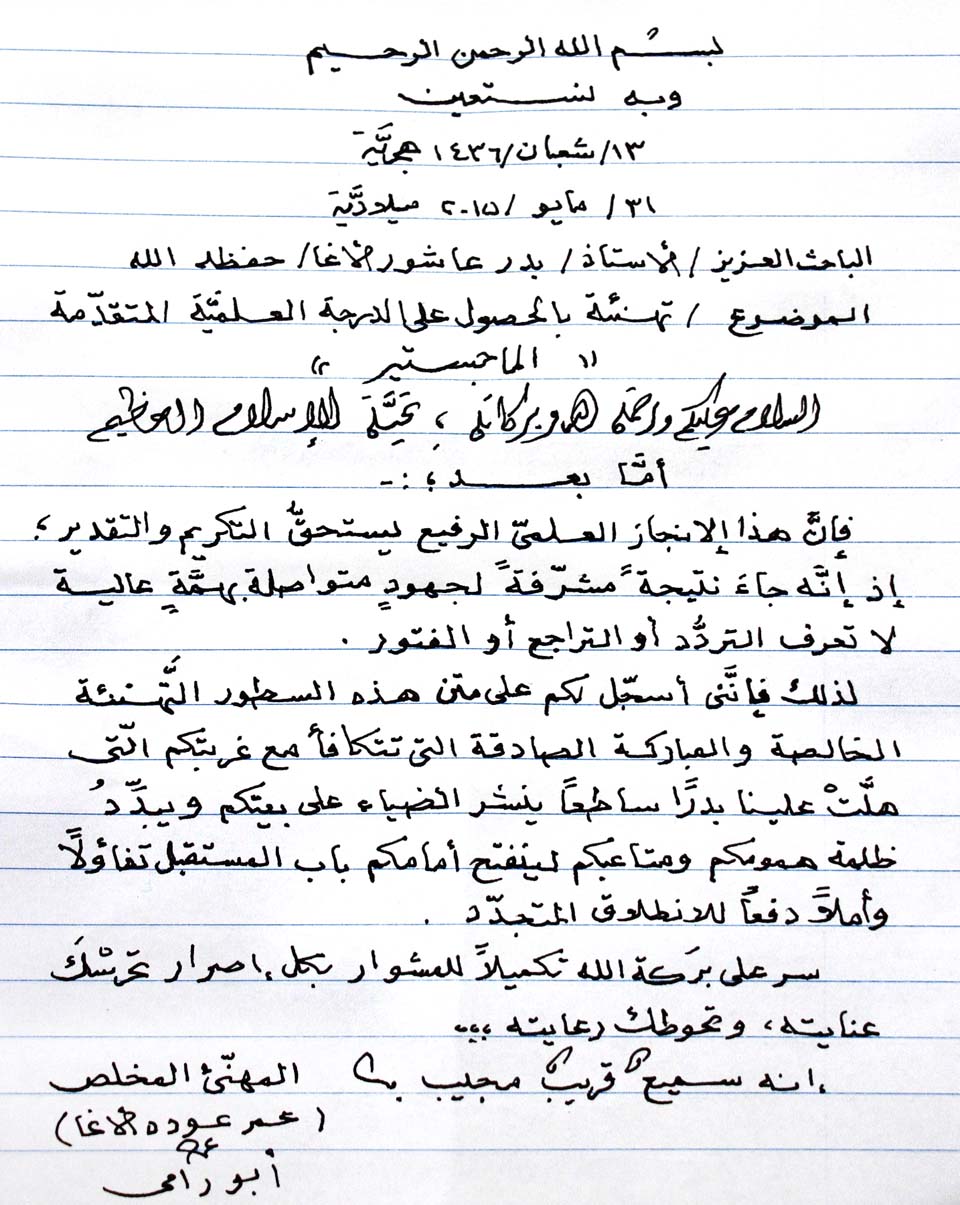 بسم الله الرحمن الرحيم
وبه نستعين
١٣/شعبان/١٤٣٦ هجريَّة
٣١/ مايو /٢٠١٥ ميلاديَّة
الباحث العزيز/ الأستاذ/ بدر عاشور الأغا/ حفظه الله
الموضوع / تهنئة بالحصول على الدرجة العلميَّة المتقدّمة
" الماجستير "
السلام عليكم ورحمة الله وبركاته ، تحيَّة الإسلام العظيم
أمَّا بعد ؛ :-
فإنَّ هذا الإنجاز العلميّ الرفيع ليستحقُّ التكريم والتقدير ؛
إذ إنَّه جاءَ نتيجةً مشرّفةً لجهودٍ متواصلة بهمَّةٍ عالية
لا تعرف التردُّد أو التراجع أو الفتور .
لذلك فإنَّني أسجّل لكم على متن هذه السطور التَّهنئة
الخالصة والمباركة الصادقة التي تتكافأ مع غربتكم الّتي
هلَّتْ علينا بدرًا ساطعاً ينشر الضياء على بيتكم ويبدِّدُ
ظلمة همومكم ومتاعبكم لينفتح أمامكم باب المستقبل تفاؤلاً
وأملاً دفعاً للانطلاق المتجدّد .
سر على بَركة الله تكميلاً للمشوار بكل إصرار تحرسْكَ
عنايته، وتحوطك رعايته ،،،
إنه سميعٌ قريبٌ مجيب المهنّئ المخلص
(عمر عوده الأغا)
أبو رامي